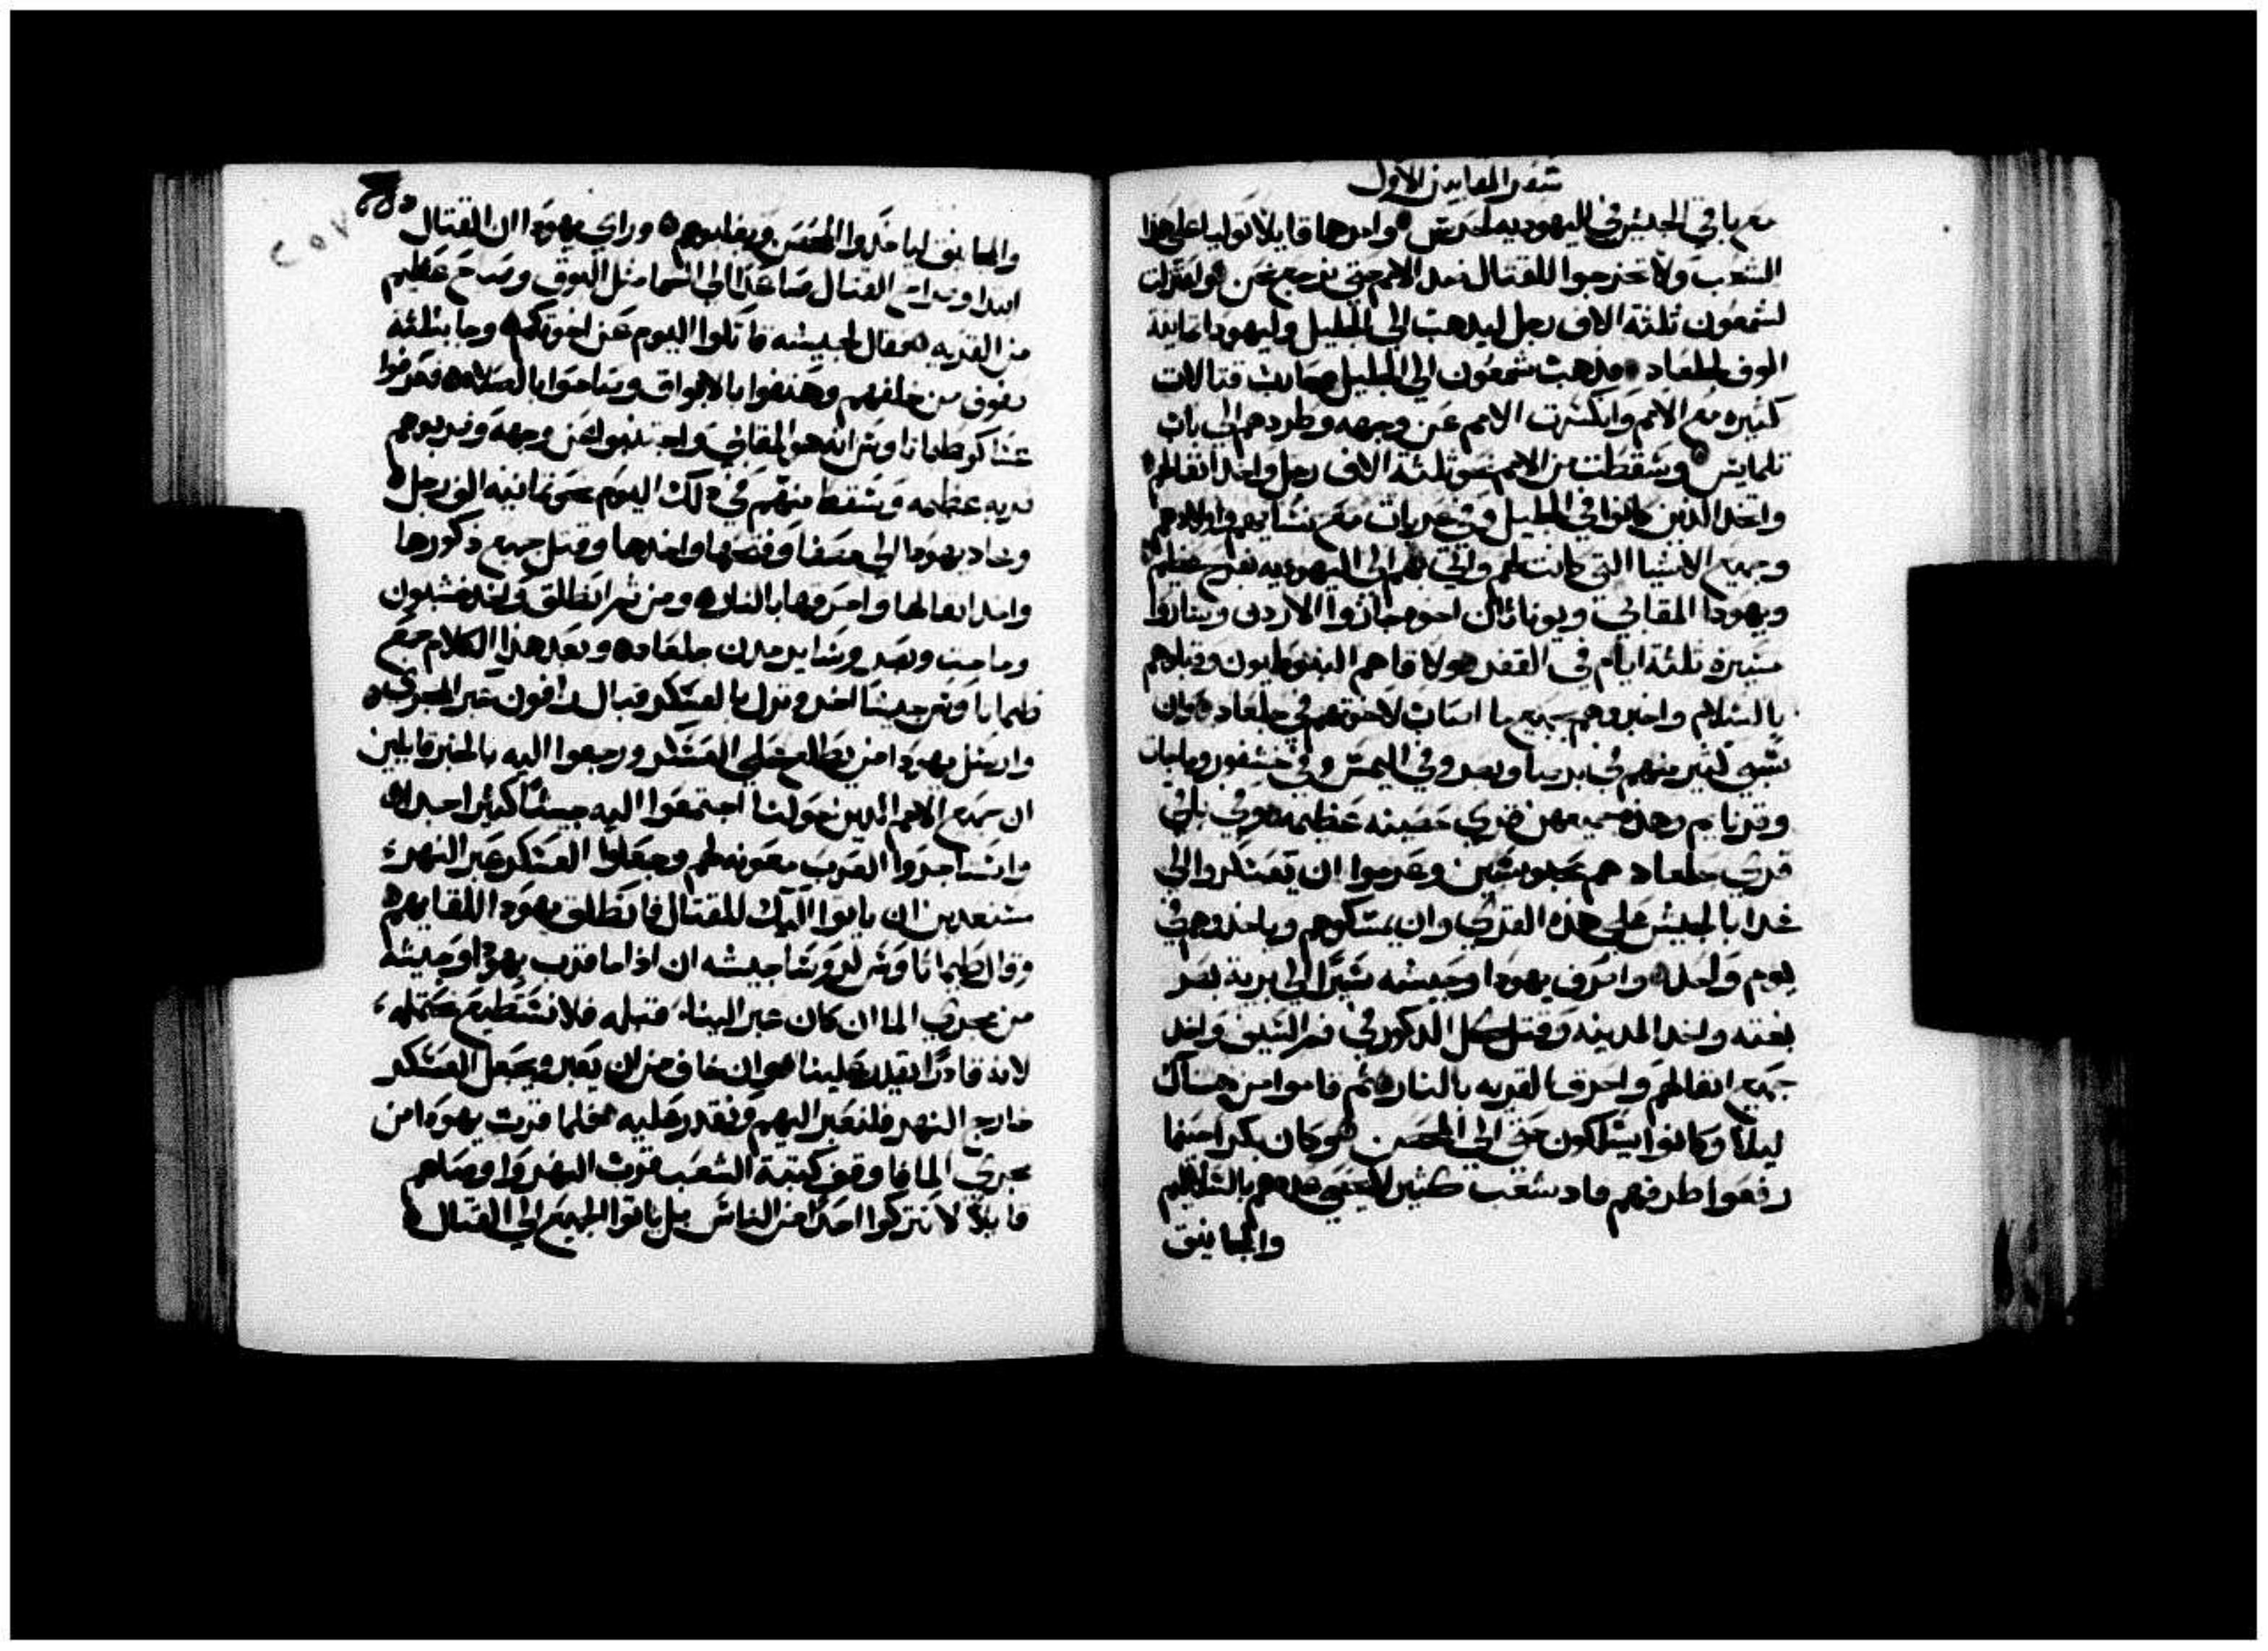 سفر المقابيين الاول
مع باقي الجيش في اليهوديه للحرص وامرهما قايلا توليا على هذا
الشعب ولا تخرجوا للقتال ضد الامم حتى نرجع نحن وافترقت
لشمعون ثلثة الاف رجل ليذهب الى الجليل وليهودا ثمانية
الوف لجلعاد وذهب شمعون الى الجليل وصارت قتالات
كثيره مع الامم وانكسرت الامم عن وجهه وطردهم الى باب
تلمايس وسقطت من الامم نحو ثلثة الاف رجل واخذ اثقالهم
واتخذ الذين كانوا في الجليل وفي عربات مع نسايهم واولادهم
وجميع الاشيا التي كانت لهم واتى بهم الى اليهوديه بفرح عظيم
ويهودا المقابي ويوناثان اخوه جازوا الاردن وسارا
مسيرة ثلثة ايام في القفر ولاقاهم النبوطايون وقبلوهم
بالسلام واخبروهم بجميع ما اصاب لاخوتهم في جلعاد وان
سبي كثير منهم في بدرسا وبصر وفي اليمس وفي خسفور وماجات
وقرنايم وهذه جميعهن قري حصينه عظيمه وفي باقي
قري جلعاد هم محبوسين وعزموا ان يعسكروا الى
غدا بالجيش على هذه القري وان يمسكوهم وياخذوهم في
يوم واحد وانحرف يهودا وجيشه سيرا الى برية بصر
بغته واخذ المدينه وقتل كل الذكور في فم السيف واخذ
جميع اثقالهم واحرق القريه بالنار ثم قاموا من هناك
ليلا وكانوا يسلكون حتى الى الحصن وكان بكرا حينما
رفعوا طرفهم فاد شعب كثير لا يحصى عددهم بالسلاليم
والمجانيق
والمجانيق لياخذوا الحصن ويغلبوهم وراى يهودا ان القتال
ابتدا وصراخ القتال صاعدا الى السما مثل البوق وصراخ عظيم
من القريه فقال لجيشه قاتلوا اليوم عن اخوتكم وجا بثلثة
صفوف من خلفهم وهتفوا بالابواق وصاحوا بالصلاه فعرفوا
عساكر طيماثاوس انه هو المقابي واجتنبوا عن وجهه وضربوهم
ضربه عظيمه وسقط منهم في ذلك اليوم نحو ثمانيه الف رجل
وحاد يهودا الى مصفا وفتحها واخذها وقتل جميع ذكورها
واخذ اثقالها واحرقها بالنار ومن ثم انطلق واخذ خسبون
وماجيت وبصر وساير مدن جلعاد وبعد هذا الكلام جمع
طيماثاوس جيشا اخر ونزل بالعسكر قبال رافون عبر المجرى
وارسل يهودا من يطلع على العسكر ورجعوا اليه بالخبر قايلين
ان جميع الامم الذين حولنا اجتمعوا اليه جيشا كثيرا جدا
واستاجروا العرب معونه لهم وجعلوا العسكر عبر النهر
مستعدين ان ياتوا اليك للقتال فانطلق يهودا للقايهم
وقال طيماثاوس لروسا جيشه ان اذا ما قرب يهودا وجيشه
من مجري الما ان كان عبر الينا قبله فلا نستطيع نحتمله
لانه قادرا يقدر علينا وان خاف من ان يعبر ويجعل العسكر
خارج النهر فلنعبر اليهم ونقدر عليه فلما قرب يهودا من
مجري الما فاوقف كتبة الشعب قرب النهر واوصاهم
قايلا لا تتركوا احدا من الناس بل ياتوا الجميع الى القتال